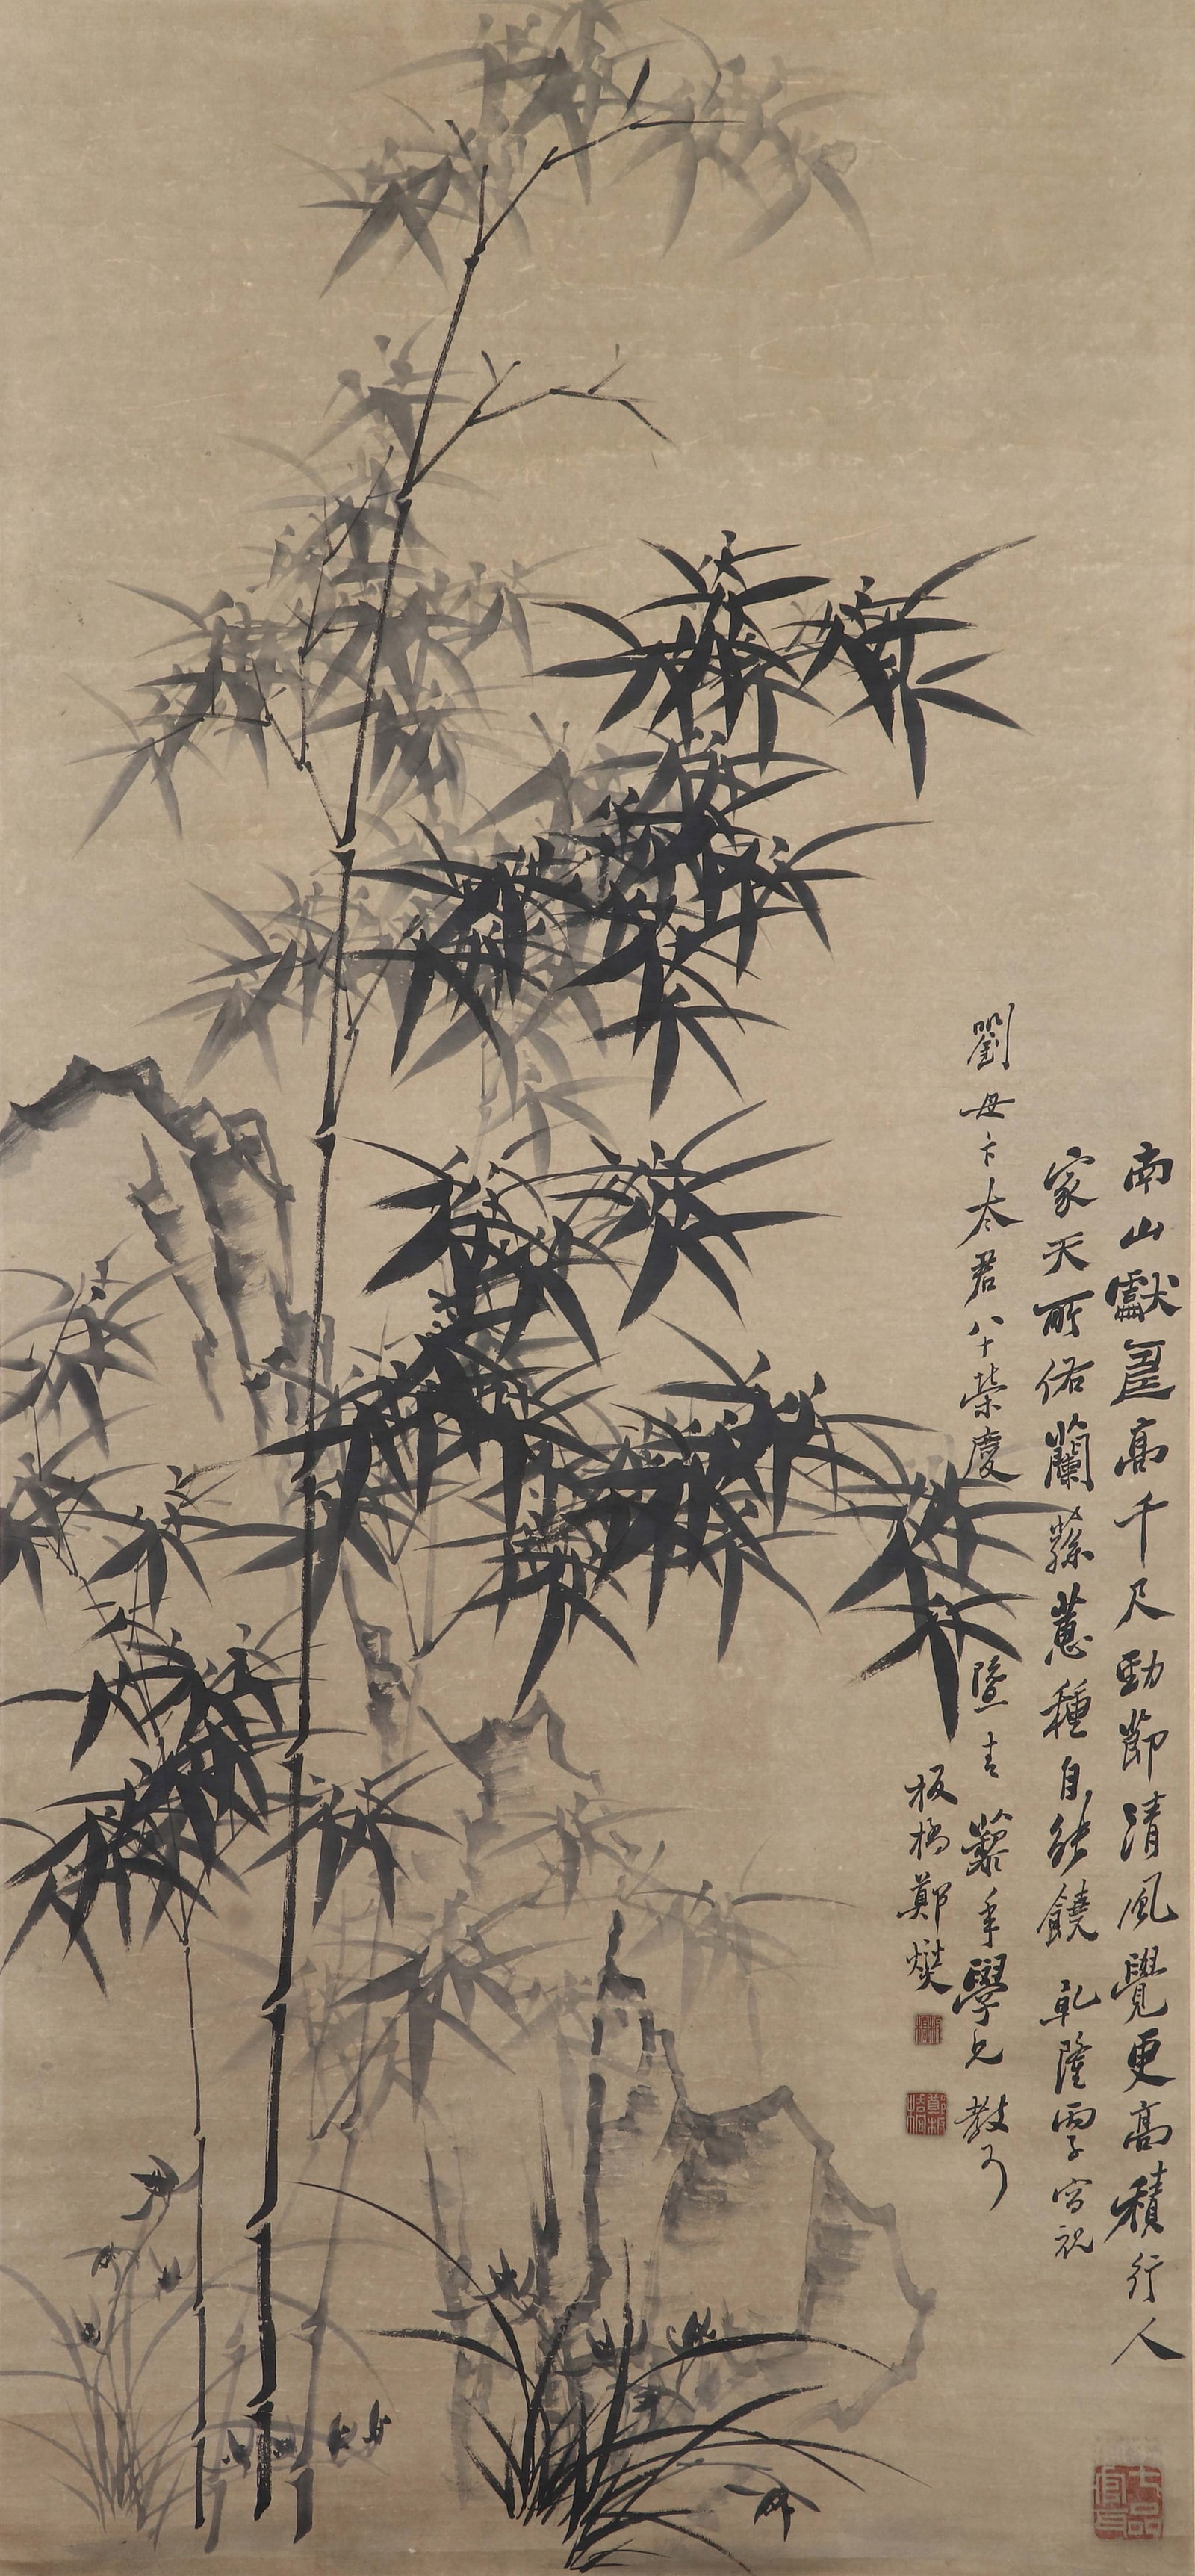 南山獻壽高千尺勁節清風覺更高積行人
家天所佑蘭蓀蕙種自能饒 乾隆 寫祝
劉母卞太君八十榮慶 暨青藜年學兄教可
板橋鄭燮
七品官耳